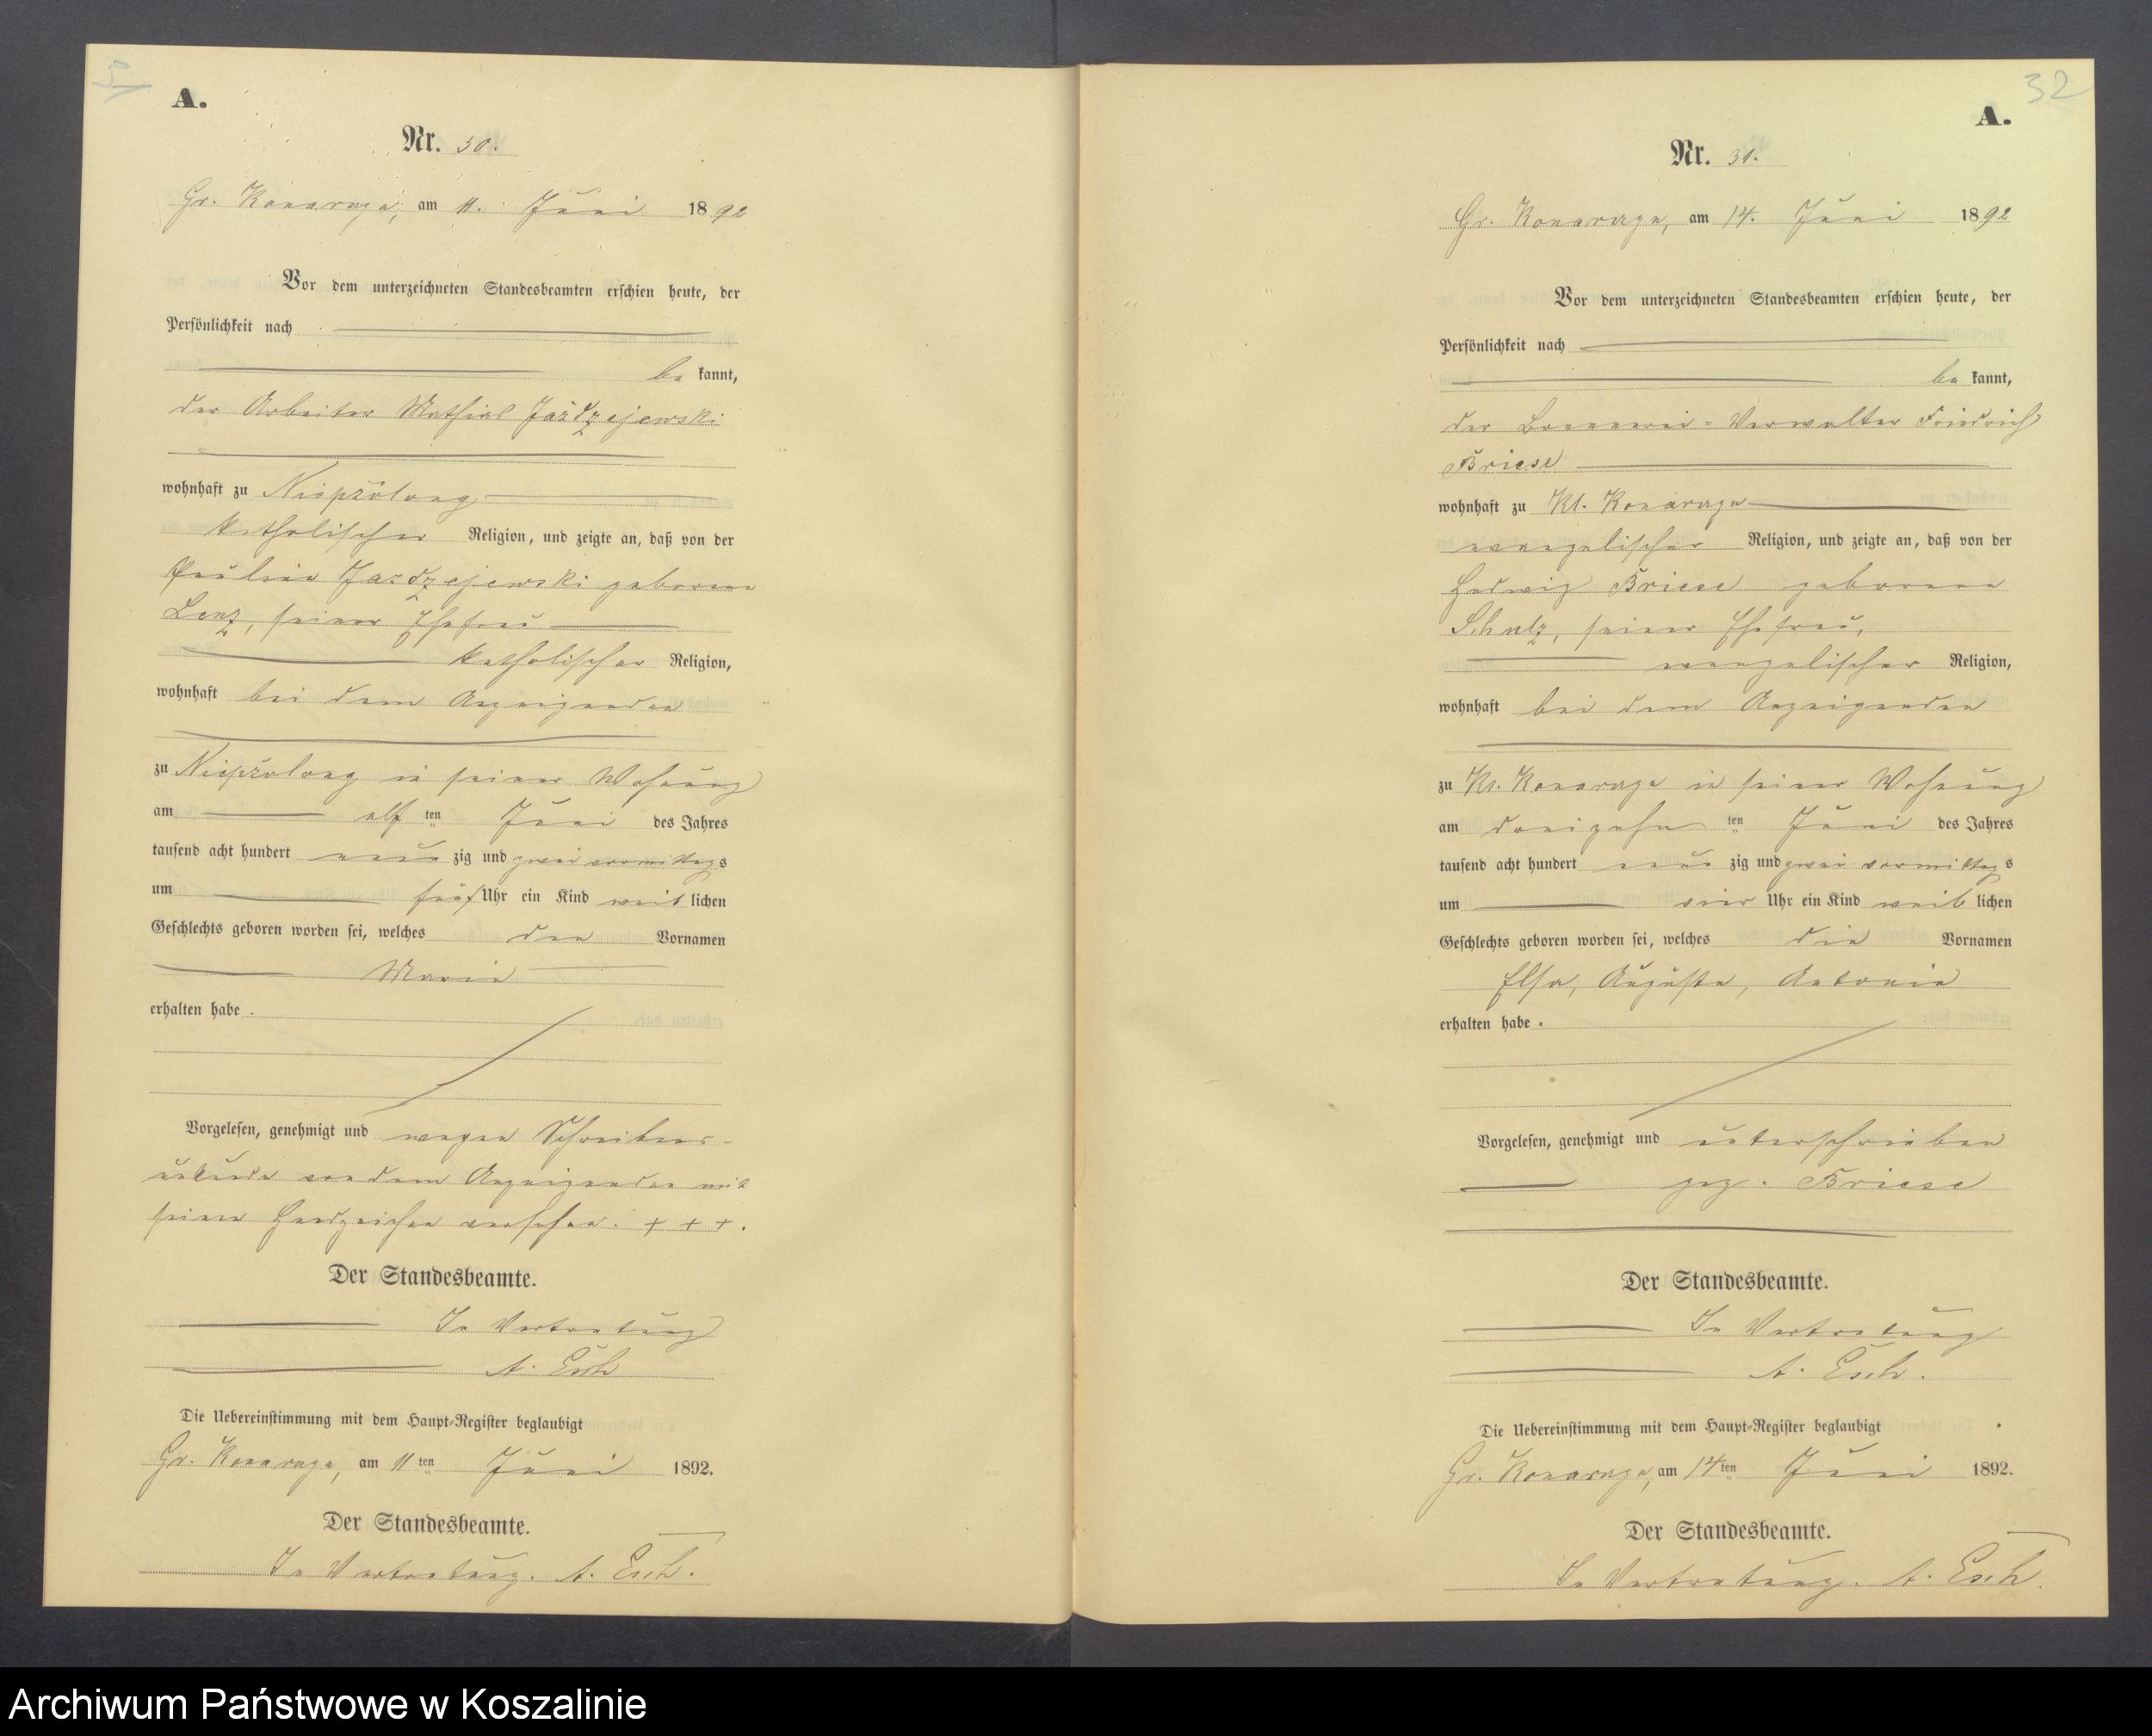 A.
Nr. 30.
Gr. Konarzyn, am 11. Juni 1892
Vor dem unterzeichneten Standesbeamten erschien heute, der
Persönlichkeit nach
be kannt,
der Arbeiter Mathias Jażdzejewski
wohnhaft zu
katholischer Religion, und zeigte an, daß von der
Pauline Jazdzejewski geborene
Lenz, seiner Ehefrau
katholischer Religion,
wohnhaft bei dem Anzeigenden
zu in seiner Wohnung
am elf ten Juni des Jahres
tausend acht hundert neun zig und zwei vormittags
um fünf Uhr ein Kind weib lichen
Geschlechts geboren worden sei, welches den Vornamen
Marie
erhalten habe.
Vorgelesen, genehmigt und wegen Schreibens-
unkunde von dem Anzeigenden mit
seinem Handzeichen versehen. + + +.
Der Standesbeamte.
In Vertretung
A. Esch
Die Uebereinstimmung mit dem Haupt-Register beglaubigt
Gr. Konarzyn, am 11 ten Juni 1892.
Der Standesbeamte.
In Vertretung. A. Esch.
32
A.
Nr. 31.
Gr. Konarzyn, am 14. Juni 1892
Vor dem unterzeichneten Standesbeamten erschien heute, der
Persönlichkeit nach
be kannt,
der Brennerei-Verwalter Friedrich
Briese
wohnhaft zu Kl. Konarzyn
evangelischer Religion, und zeigte an, daß von der
Hedwig Briese geborene
Schulz, seiner Ehefrau,
evangelischer Religion,
wohnhaft bei dem Anzeigenden
zu Kl. Konarzyn in seiner Wohnung
am dreizehn ten Juni des Jahres
tausend acht hundert neun zig und zwei vormittags
um vier Uhr ein Kind weib lichen
Geschlechts geboren worden sei, welches die Vornamen
Elsa, Auguste, Antonie
erhalten habe.
Vorgelesen, genehmigt und unterschrieben
gez. Briese
Der Standesbeamte.
In Vertretung
A. Esch.
Die Uebereinstimmung mit dem Haupt-Register beglaubigt
Gr. Konarzyn, am 14 ten Juni 1892.
Der Standesbeamte.
In Vertretung. A. Esch.
Archiwum Państwowe w Koszalinie